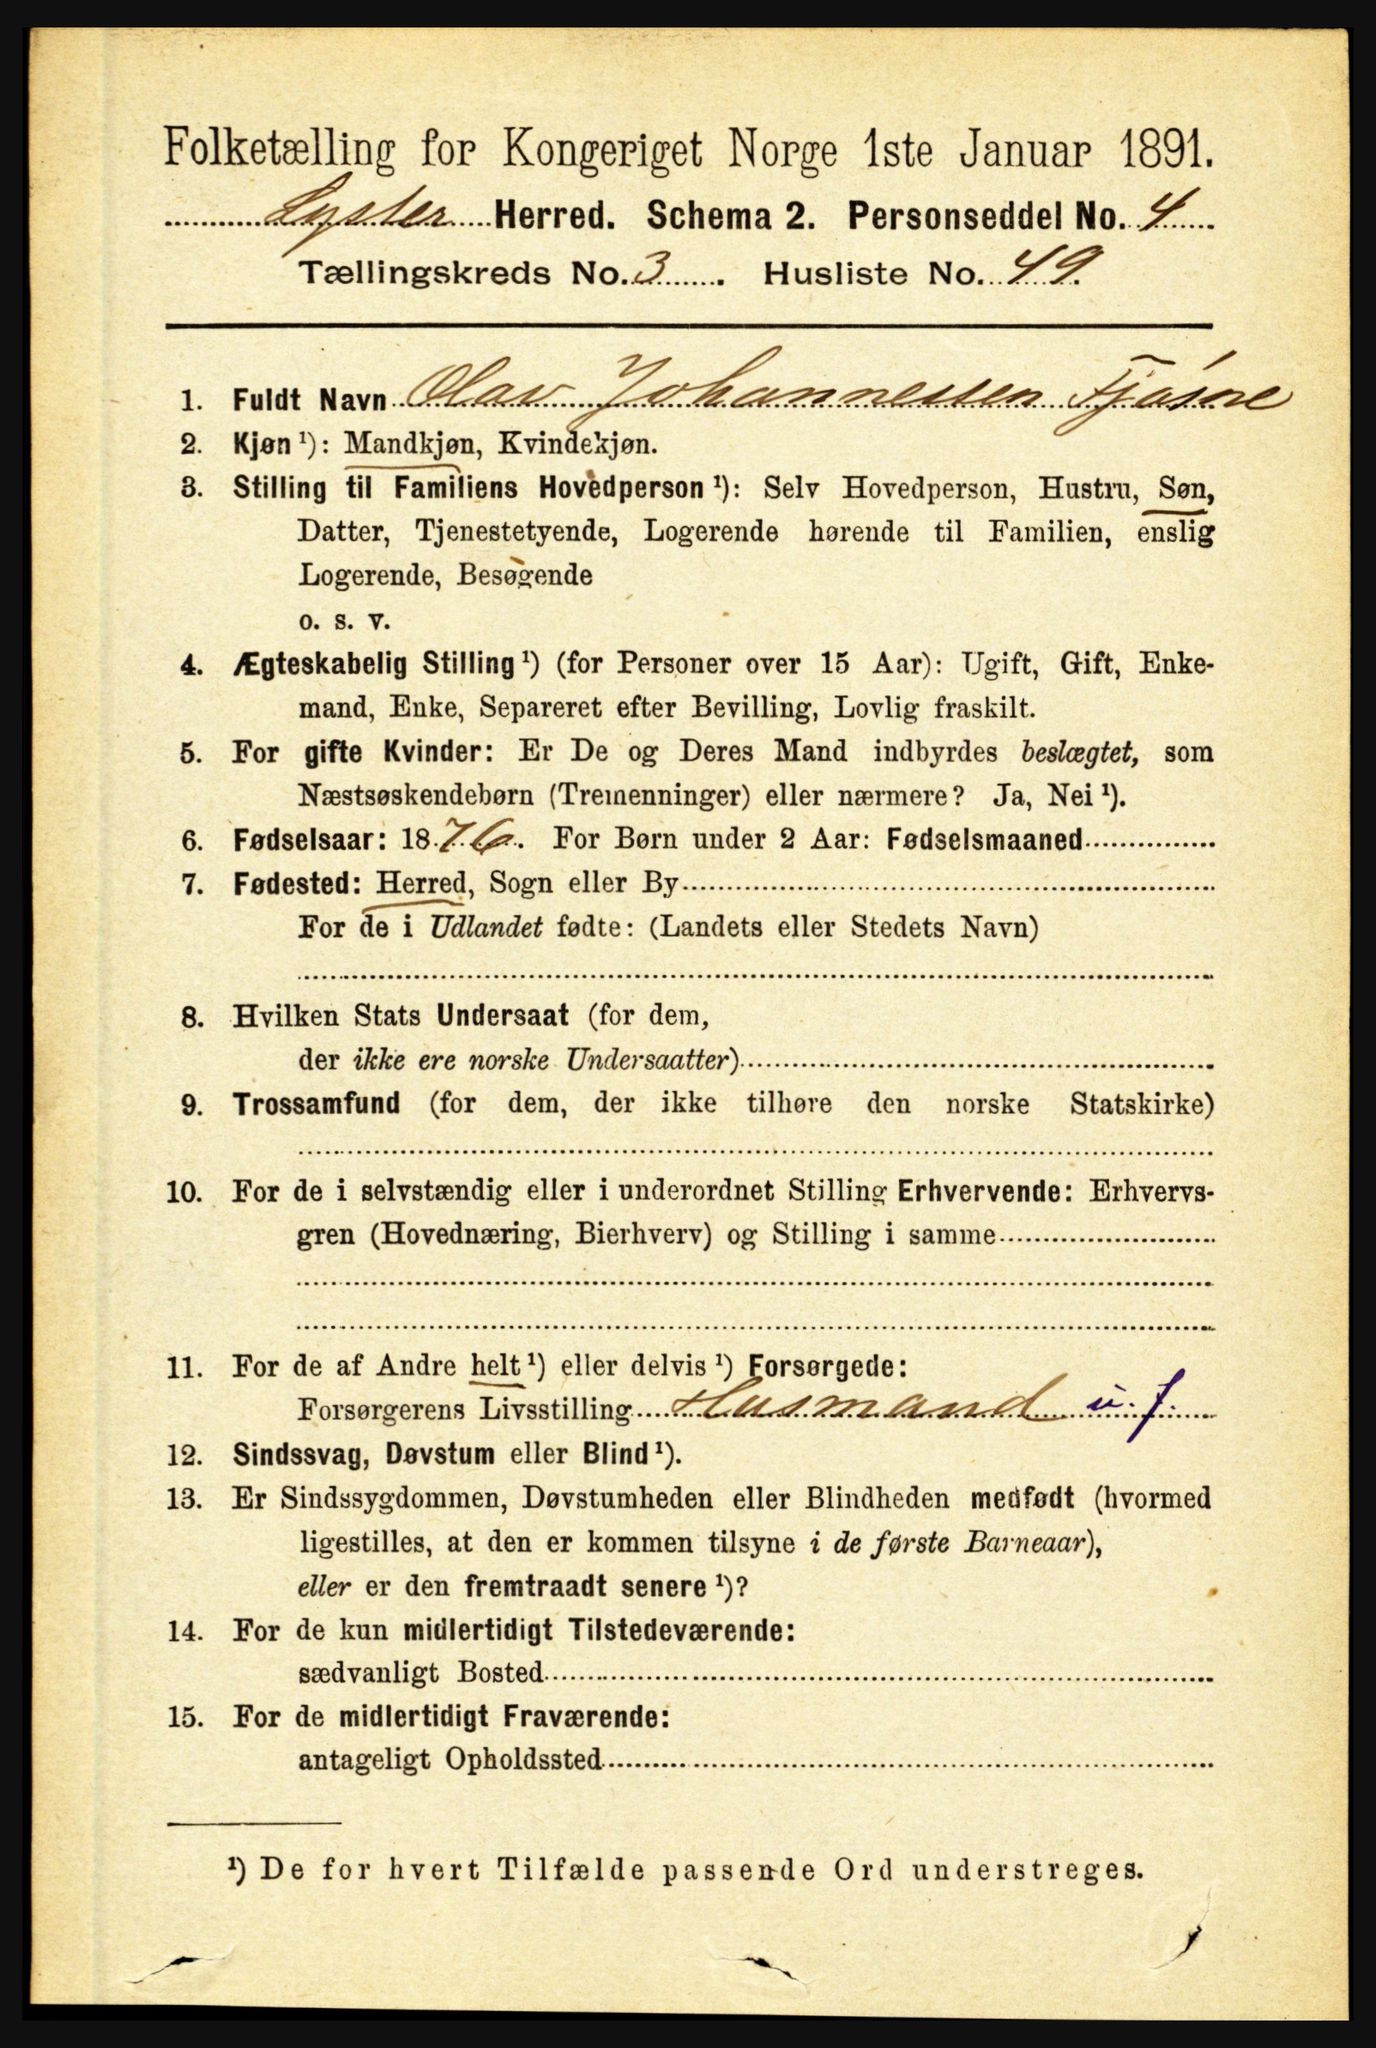 Folketælling for Kongeriget Norge 1ste Januar 1891.
Lyster Herred. Schema 2. Personseddel No. 4
Tællingskreds No. 3. Husliste No. 49.
1. Fuldt Navn Olav Johannessen Fjøsne
2. Kjøn ¹): Mandkjøn, Kvindekjøn.
3. Stilling til Familiens Hovedperson ¹): Selv Hovedperson, Hustru, Søn,
Datter, Tjenestetyende, Logerende hørende til Familien, enslig
Logerende, Besøgende
o. s. v.
4. Ægteskabelig Stilling ¹) (for Personer over 15 Aar): Ugift, Gift, Enke-
mand, Enke, Separeret efter Bevilling, Lovlig fraskilt.
5. For gifte Kvinder: Er De og Deres Mand indbyrdes beslægtet, som
Næstsøskendebørn (Tremenninger) eller nærmere? Ja, Nei ¹).
6. Fødselsaar: 1876. For Børn under 2 Aar: Fødselsmaaned
7. Fødested: Herred, Sogn eller By
For de i Udlandet fødte: (Landets eller Stedets Navn)
8. Hvilken Stats Undersaat (for dem,
der ikke ere norske Undersaatter)
9. Trossamfund (for dem, der ikke tilhøre den norske Statskirke)
10. For de i selvstændig eller i underordnet Stilling Erhvervende: Erhvervs-
gren (Hovednæring, Bierhverv) og Stilling i samme
11. For de af Andre helt ¹) eller delvis ¹) Forsørgede:
Forsørgerens Livsstilling Husmand u. j.
12. Sindssvag, Døvstum eller Blind ¹).
13. Er Sindssygdommen, Døvstumheden eller Blindheden medfødt (hvormed
ligestilles, at den er kommen tilsyne i de første Barneaar),
eller er den fremtraadt senere ¹)?
14. For de kun midlertidigt Tilstedeværende:
sædvanligt Bosted
15. For de midlertidigt Fraværende:
antageligt Opholdssted
¹) De for hvert Tilfælde passende Ord understreges.